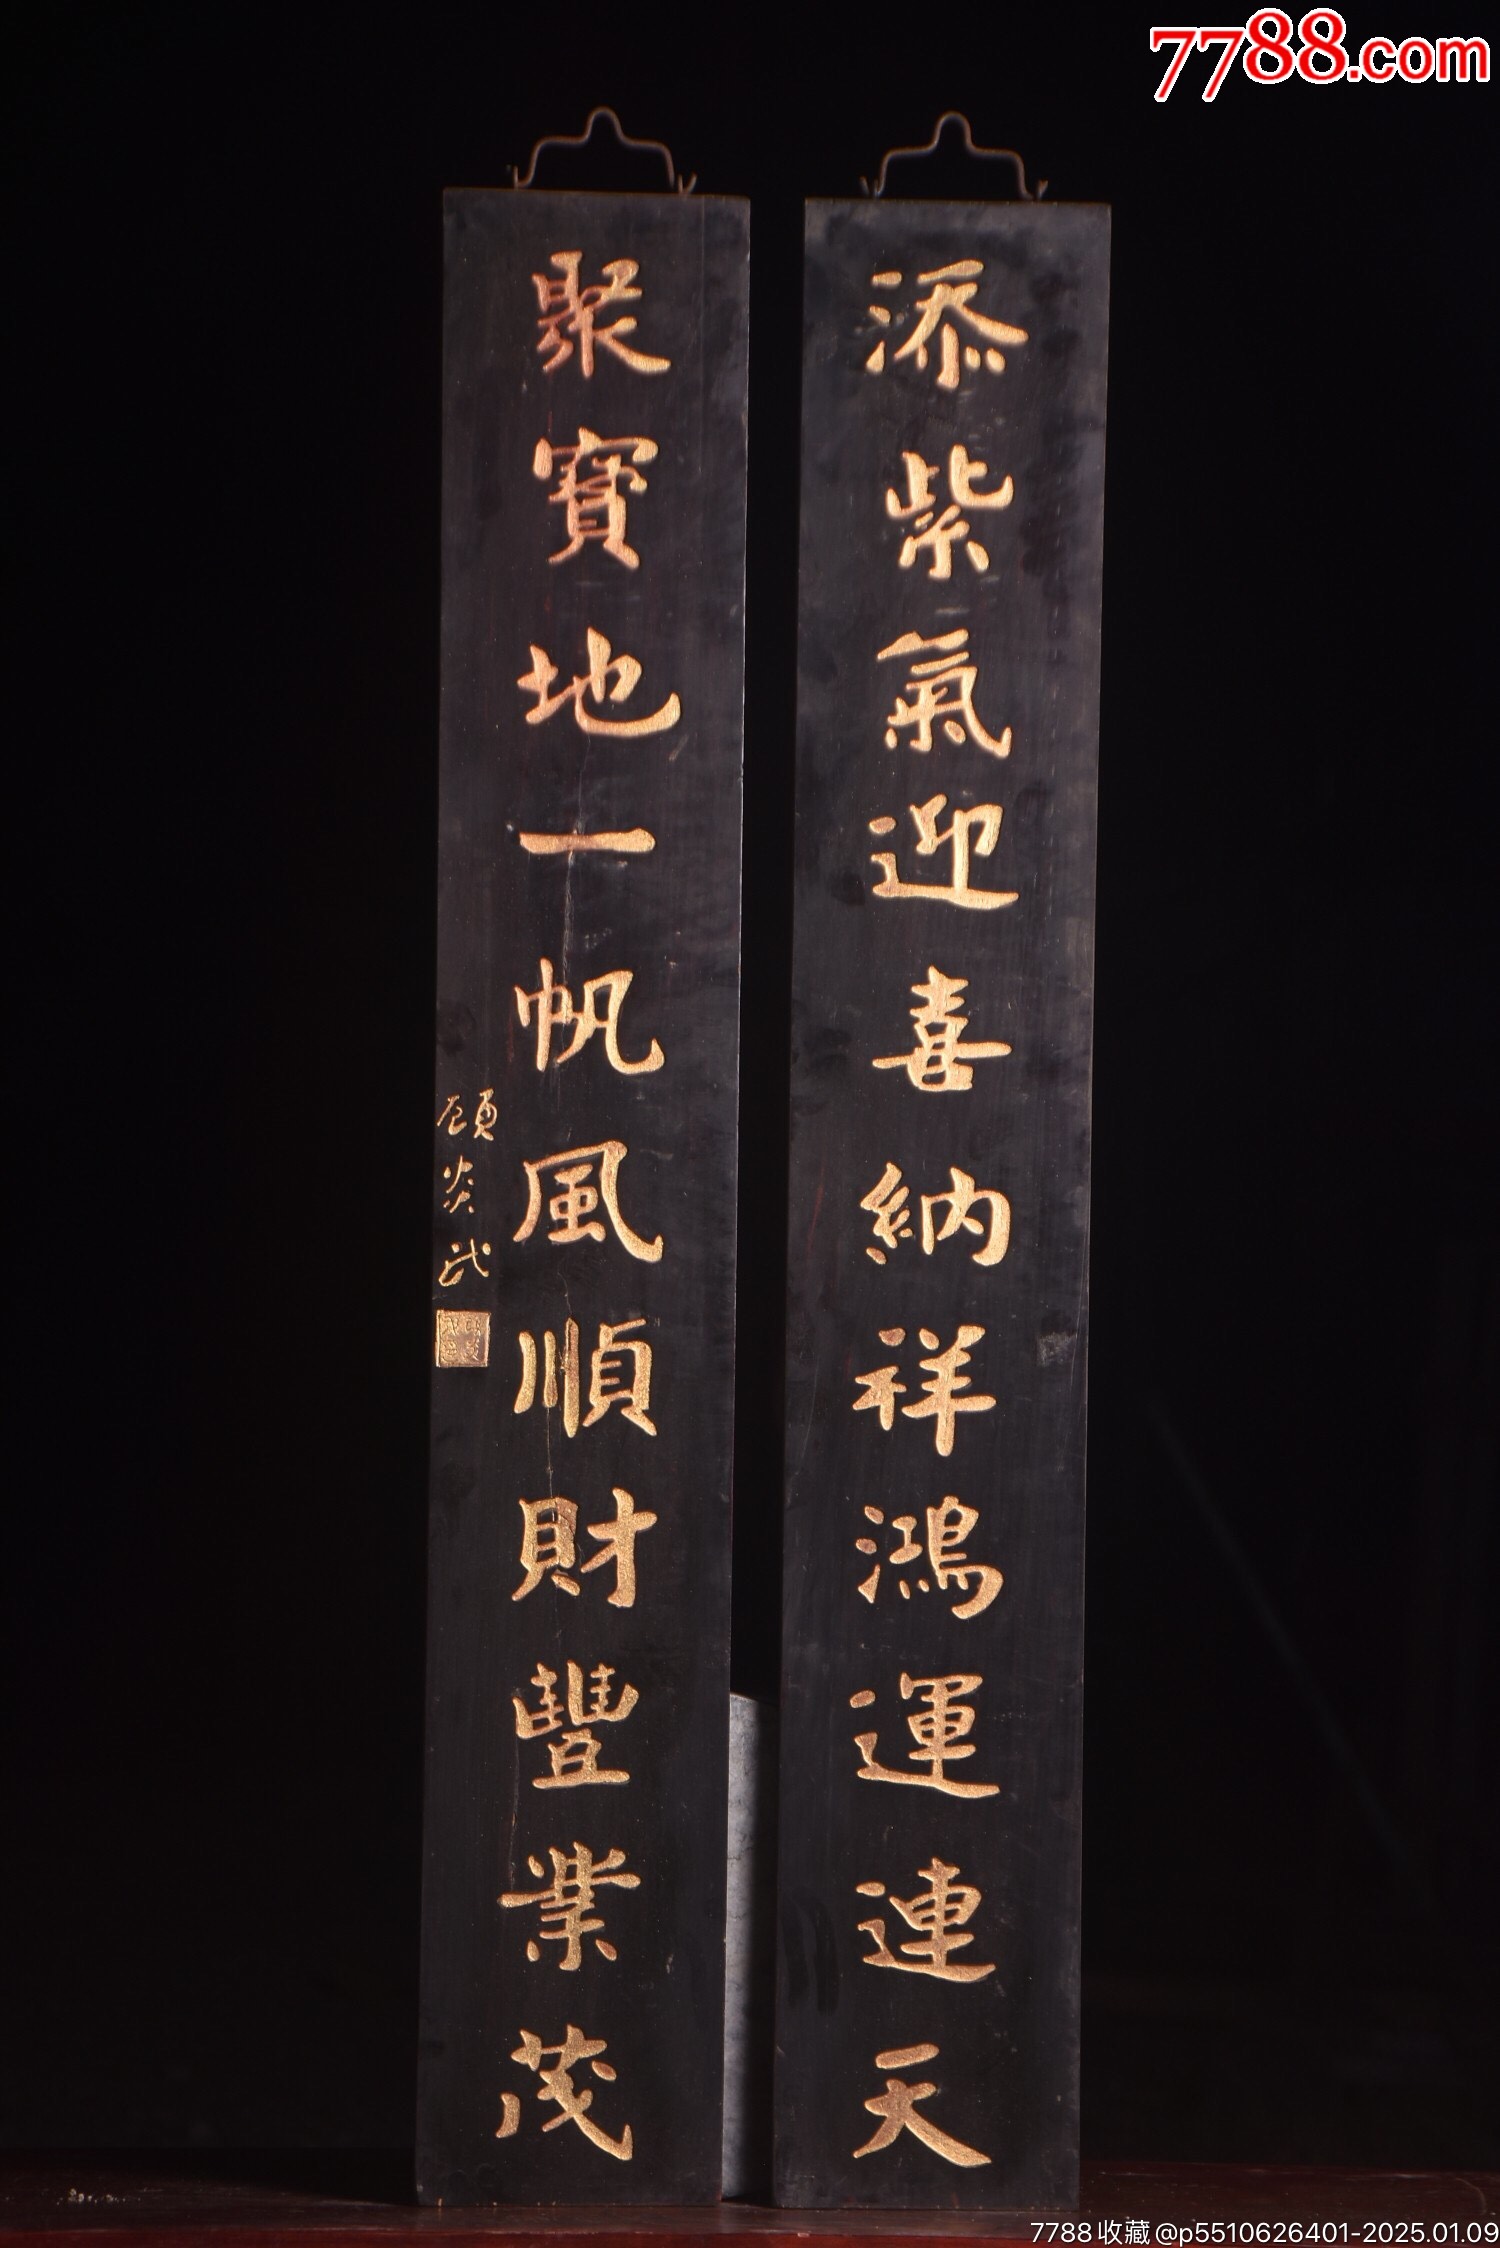 7788.com
添紫氣迎喜納祥鴻運連天
聚寶地一帆風順財豐業茂
顧炎武
7788收藏@p5510626401-2025.01.09